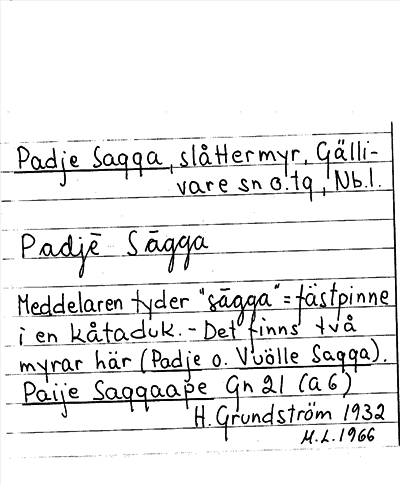 Padje Sagga, slåttermyr, Gälli-
vare sn o. tg, Nb.l.
Padjē Sāgga
Meddelaren tyder "sāgga" = fästpinne
i en kåtaduk. - Det finns två
myrar här (Padje o. Vuölle Sagga).
Paije Saggaape Gn 21 (a 6)
H. Grundström 1932
M.L. 1966